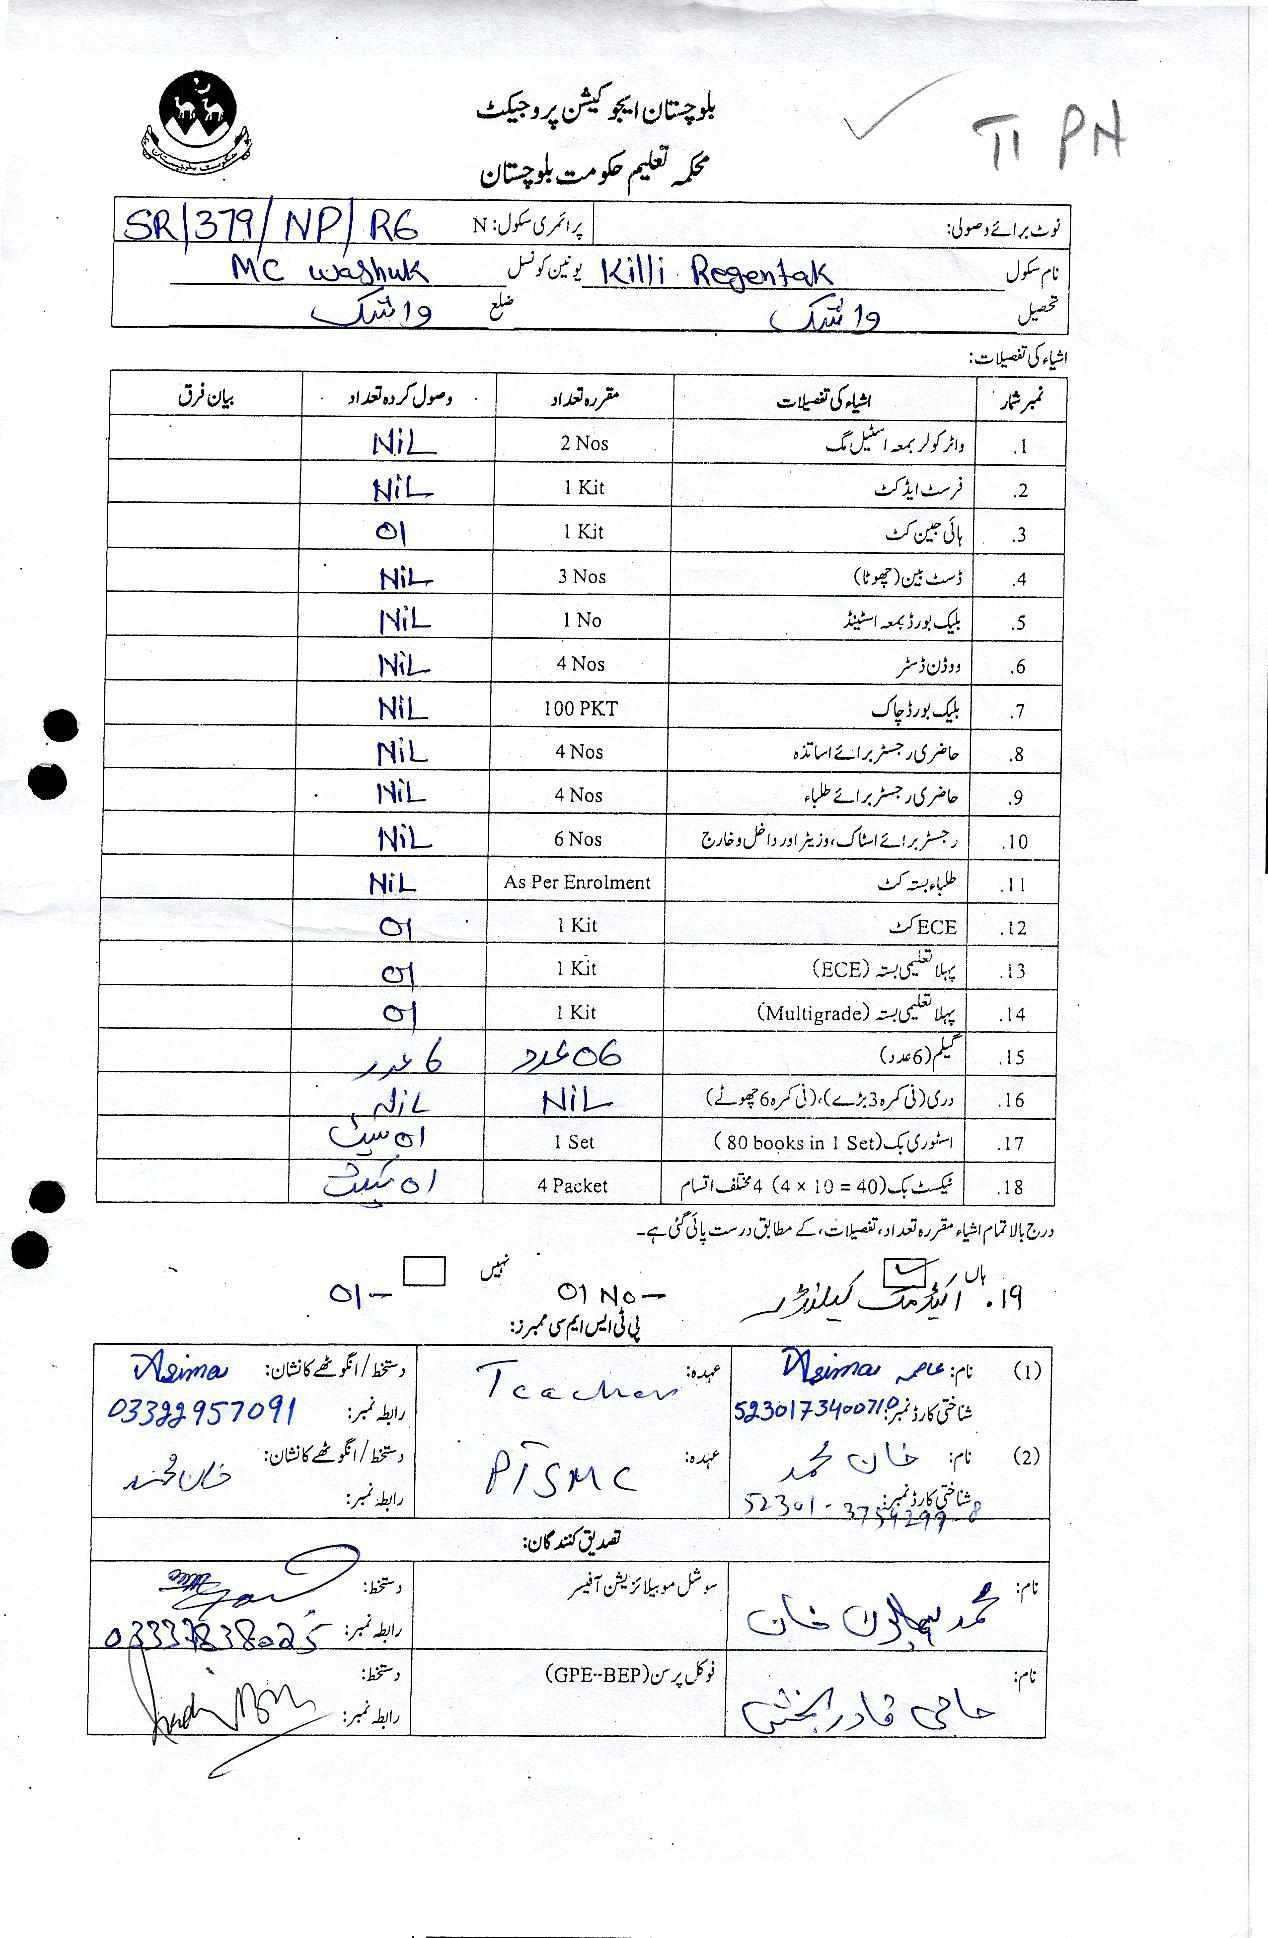 TI PN
بلوچستان ایجوکیشن پروجیکٹ
محکمہ تعلیم حکومت بلوچستان
نوٹ برائے وصولی: پرائمری سکول: N SR/379/NP/R6
نام سکول Killi Regentak یونین کونسل MC Washuk
تحصیل واشک ضلع واشک
اشیاء کی تفصیلات:
نمبر شمار اشیاء کی تفصیلات مقررہ تعداد وصول کردہ تعداد بیان فرق
1. واٹر کولر بمعہ اسٹیل مگ 2 Nos NiL
2. فرسٹ ایڈ کٹ 1 Kit NiL
3. ہائی جین کٹ 1 Kit 01
4. ڈسٹ بین (چھوٹا) 3 Nos NiL
5. بلیک بورڈ بمعہ اسٹینڈ 1 No NiL
6. ووڈن ڈسٹر 4 Nos NiL
7. بلیک بورڈ چاک 100 PKT NiL
8. حاضری رجسٹر برائے اساتذہ 4 Nos NiL
9. حاضری رجسٹر برائے طلباء 4 Nos NiL
10. رجسٹر برائے اسٹاک، وزیٹر اور داخل و خارج 6 Nos NiL
11. طلباء بستہ کٹ As Per Enrolment NiL
12. ECE کٹ 1 Kit 01
13. پہلا تعلیمی بستہ (ECE) 1 Kit 01
14. پہلا تعلیمی بستہ (Multigrade) 1 Kit 01
15. گیلم (6 عدد) 06 عدد 6 عدد
16. دری (فی کمرہ 3 بڑے)، (فی کمرہ 6 چھوٹے) NiL NiL
17. اسٹوری بک (80 books in 1 Set) 1 Set 01 سیٹ
18. ٹیکسٹ بک (4 x 10 = 40) 4 مختلف اقسام 4 Packet 01
درج بالا تمام اشیاء مقررہ تعداد، تفصیلات، کے مطابق درست پائی گئی ہے۔
ہاں نہیں
۱۹. اکیڈمک کیلنڈر 01 No – 01 –
پی ٹی ایس ایم سی ممبرز:
(1) نام: عاصمہ Asima عہدہ: Teacher دستخط/انگوٹھے کا نشان: Asima
شناختی کارڈ نمبر: 5230173400710 رابطہ نمبر: 03322957091
(2) نام: خان محمد عہدہ: PTSMC دستخط/انگوٹھے کا نشان: خان محمد
شناختی کارڈ نمبر: 52301-3754299-8 رابطہ نمبر:
تصدیق کنندگان:
نام: محمد ہمایون خان سوشل موبیلائزیشن آفیسر دستخط:
رابطہ نمبر: 03337838025
نام: حاجی قادر بخش فوکل پرسن (GPE-BEP) دستخط:
رابطہ نمبر: